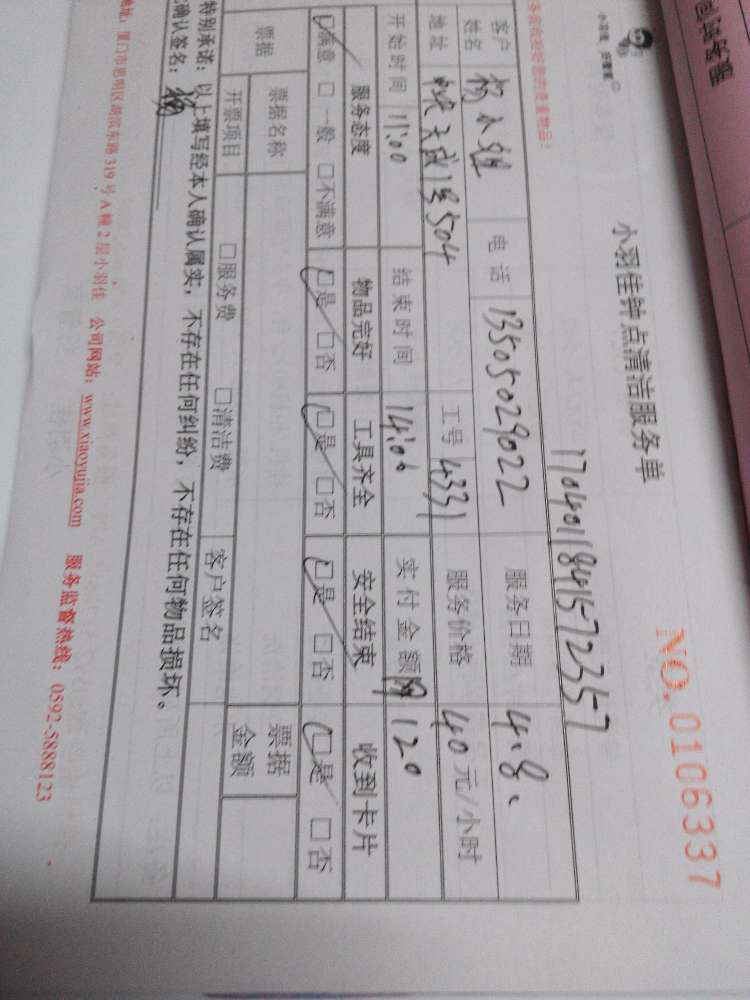 小羽佳钟点清洁服务单
NO.0106337
1704011841572357
客户姓名 杨小姐 电话 13505029022 服务日期 4.8.
地址 天成1号504 工号 4331 服务价格 40元/小时
开始时间 11:00 结束时间 14:00 实付金额 120
服务态度 物品完好 工具齐全 安全结束 收到卡片
□满意 □一般 □不满意 □是 □否 □是 □否 □是 □否 □是 □否
票据 票据名称 票据金额
开票项目 □服务费 □清洁费 客户签名
特别承诺：以上填写经本人确认属实，不存在任何纠纷，不存在任何物品损坏。
确认签名：杨
地址：厦门市思明区湖滨东路319号A幢2层小羽佳 公司网站：www.xiaoyujia.com 服务监督热线：0592-5888123
服务时间